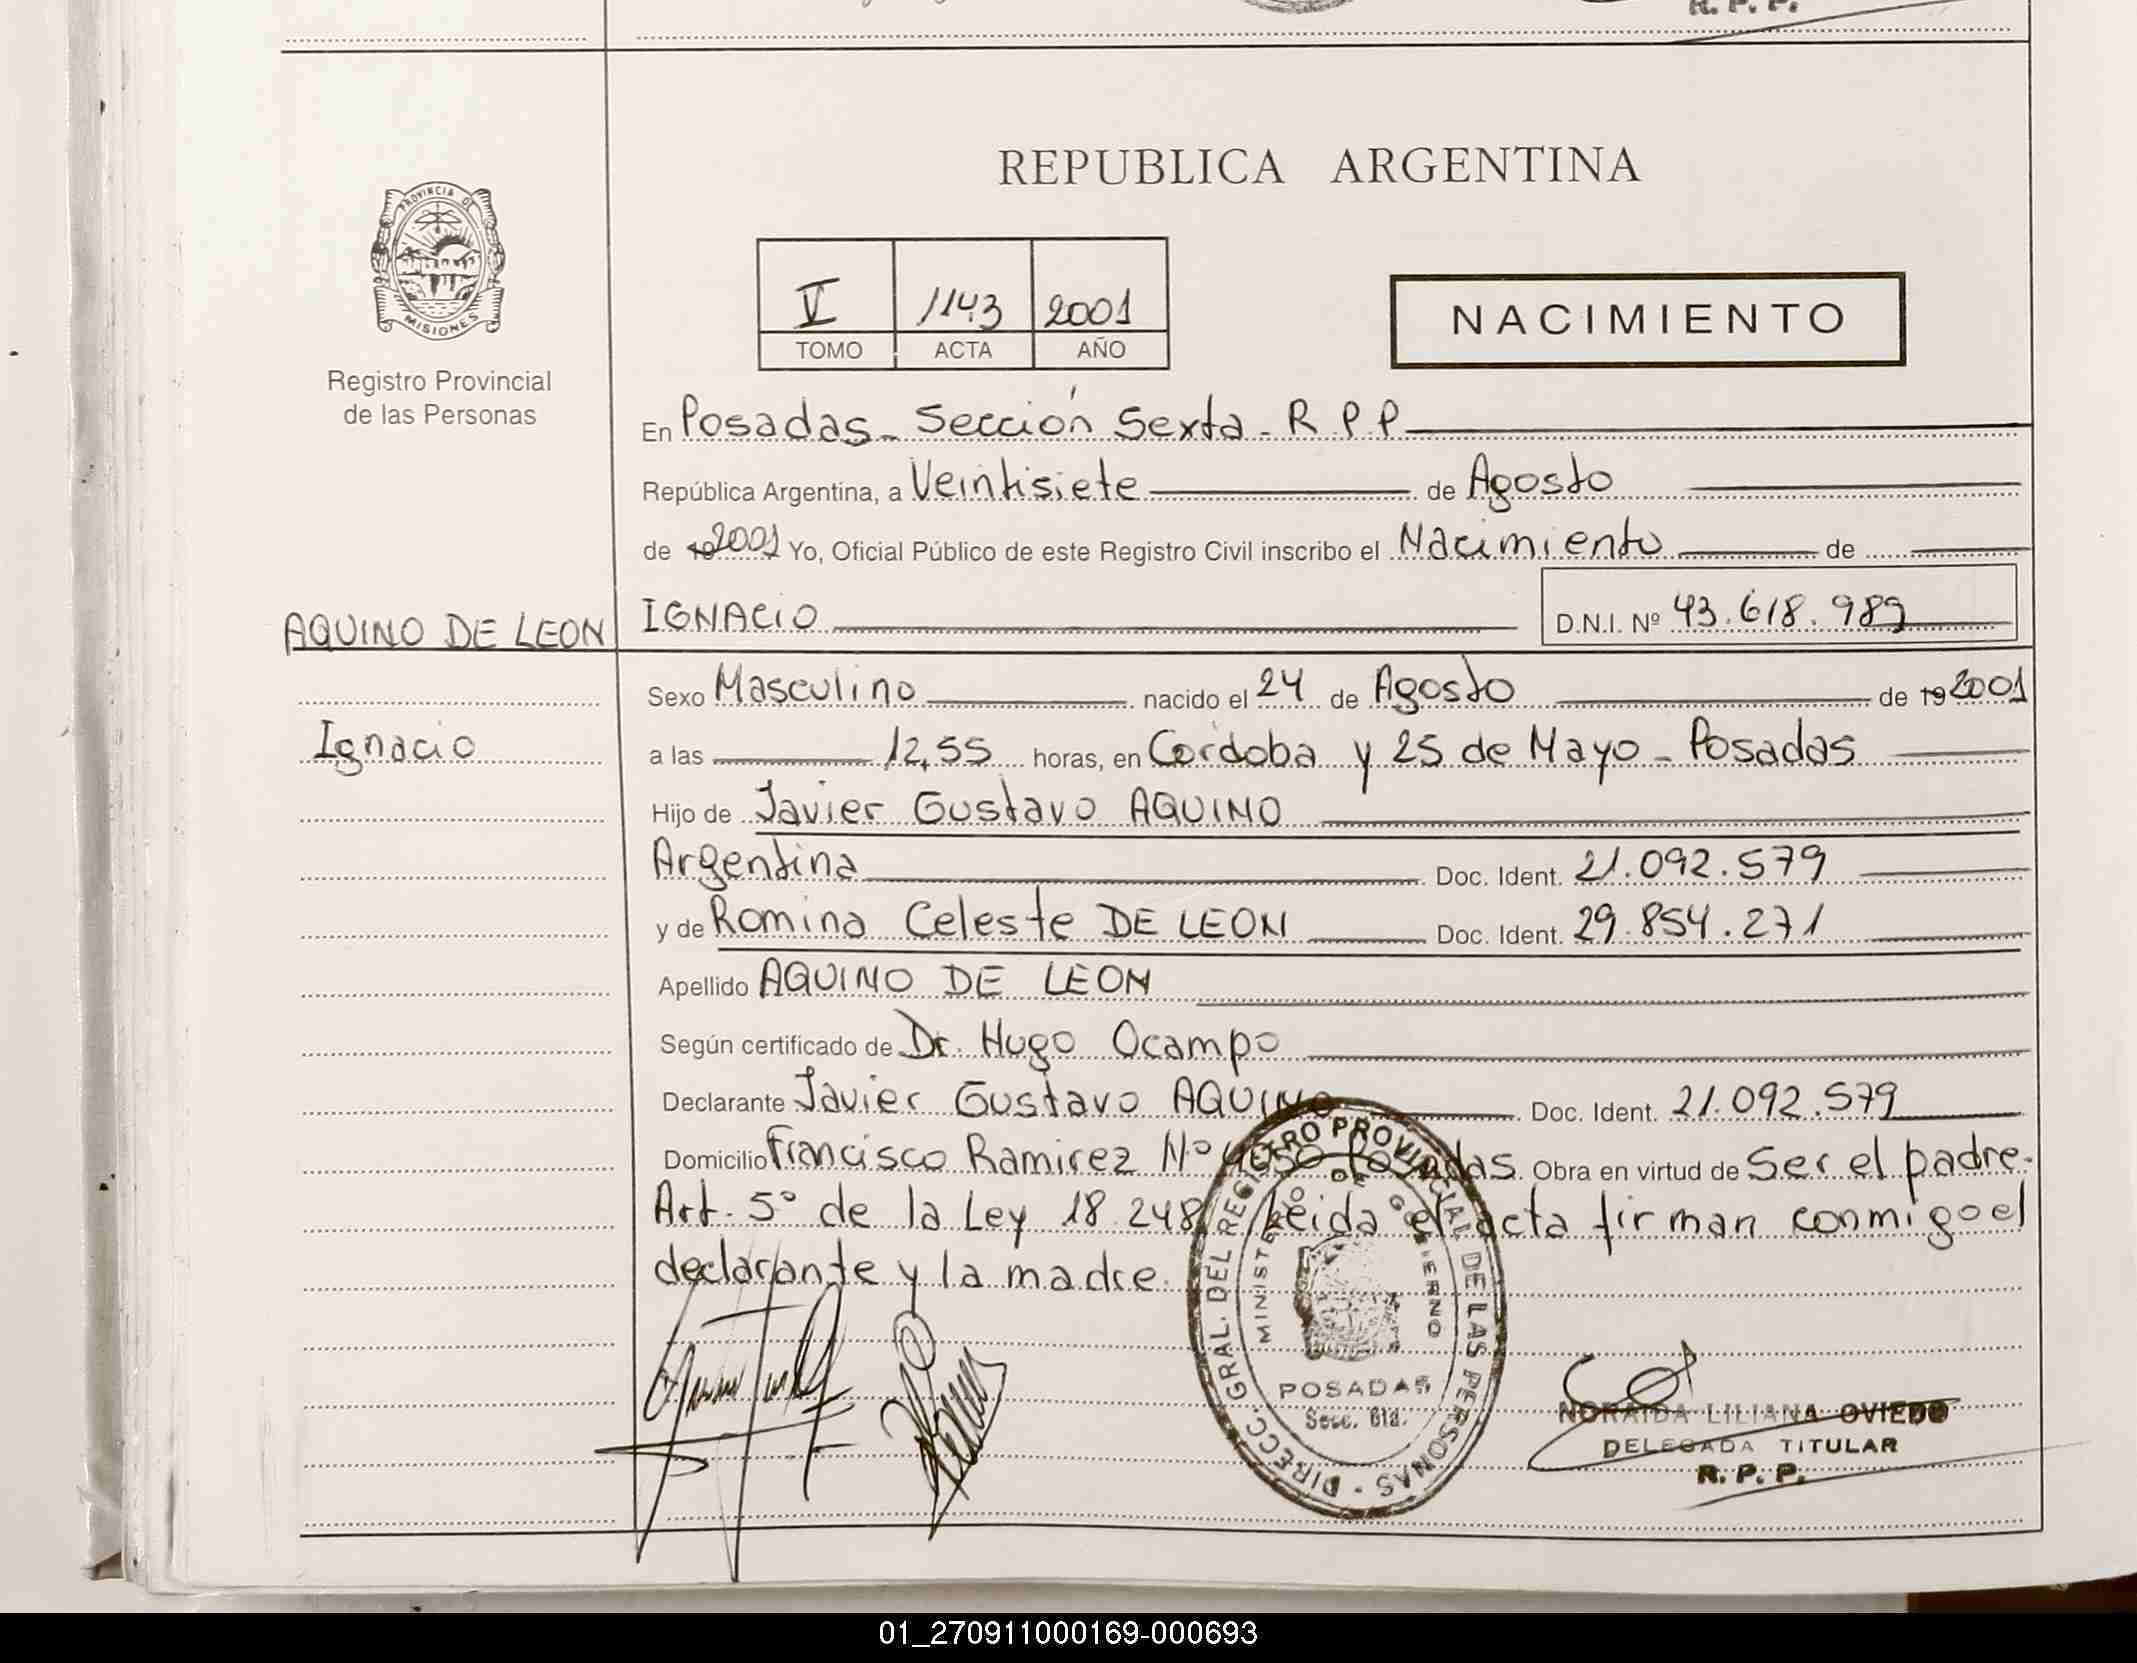 R. P. P.
REPUBLICA ARGENTINA
PROVINCIA DE
MISIONES
Registro Provincial
de las Personas
V 1143 2001
TOMO ACTA AÑO
NACIMIENTO
En Posadas - Sección Sexta - R P P
República Argentina, a Veintisiete de Agosto
de 19 2001 Yo, Oficial Público de este Registro Civil inscribo el Nacimiento de
AQUINO DE LEON IGNACIO D.N.I. Nº 43.618.989
Sexo Masculino nacido el 24 de Agosto de 19 2001
Ignacio
a las 12,55 horas, en Cordoba y 25 de Mayo - Posadas
Hijo de Javier Gustavo AQUINO
Argentina Doc. Ident. 21.092.579
y de Romina Celeste DE LEON Doc. Ident. 29.854.271
Apellido AQUINO DE LEON
Según certificado de Dr. Hugo Ocampo
Declarante Javier Gustavo AQUINO Doc. Ident. 21.092.579
Domicilio Francisco Ramirez Nº Posadas. Obra en virtud de Ser el padre.
Art. 5º de la Ley 18.248 Leida el acta firman conmigo el
declarante y la madre.
DIRECC. GRAL. DEL REGISTRO PROVINCIAL DE LAS PERSONAS
MINISTERIO DE GOBIERNO
POSADAS
Secc. 6ta.
NORAIDA LILIANA OVIEDO
DELEGADA TITULAR
R. P. P.
01_270911000169-000693